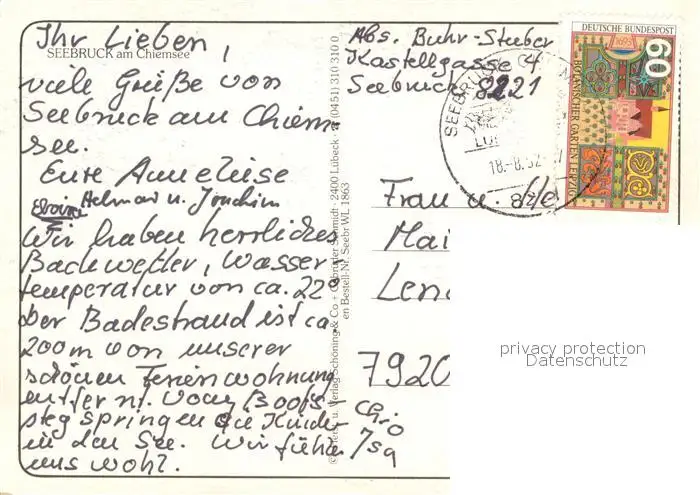 Ihr Lieben,
SEEBRUCK am Chiemsee
viele Grüße von
Seebruck am Chiem
see.
Eure Anneliese
Helmar u. Joachim
Wir haben herrliches
Badewetter, Wasser-
temperatur von ca. 22°
Der Badestrand ist ca.
200m von unserer
schönen Ferienwohnung
entfernt. Vom Boots-
steg springen die Kinder
in den See. Wir fühlen
uns wohl.
Verlag Schöning & Co + Gebrüder Schmidt, 2400 Lübeck ☎ (0451) 310 310 0
Bestell-Nr. Seebr WL 1863
Abs. Buhr-Stuber
Kastellgasse 4
Seebruck 8221
DEUTSCHE BUNDESPOST
60
1693
BOTANISCHER GARTEN LEIPZIG
SEEBRUCK
Frau u.
Mai
Len
7920
privacy protection
Datenschutz